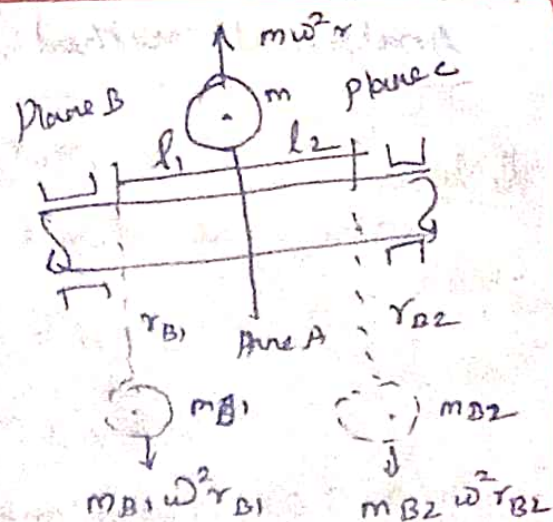 mω²r
m
Plane B
Plane C
l₁
l₂
r_B1
Plane A
r_B2
m_B1
m_B2
m_B1 ω² r_B1
m_B2 ω² r_B2